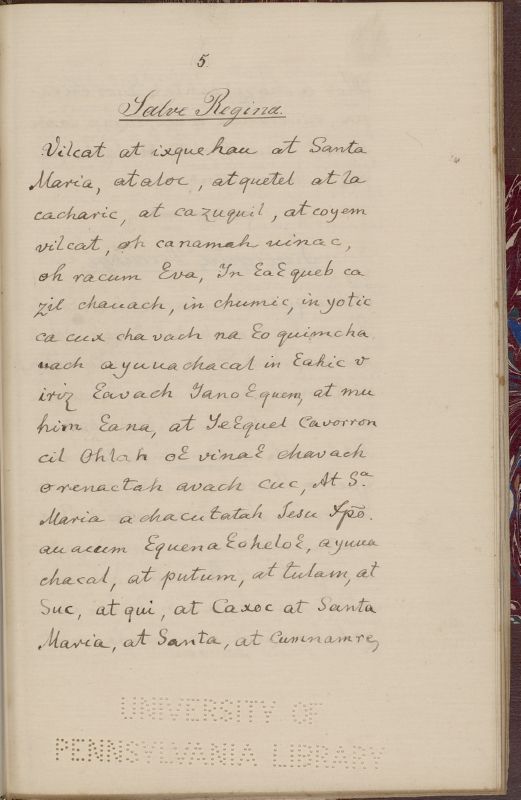 5
Salve Regina.
Vilcat at ixquehau at Santa
Maria, at aloc, at quetel at la
cacharic, at cazuquil, at coyem
vilcat, oh canamah uinac,
oh racum Eva, In ƐaƐqueb ca
zil chauach, in chumic, in yotic
ca cux cha vach na Ɛo quimcha
uach ayuuachacal in Ɛahic v
iriz Ɛavach YanoƐquem, at mu
him Ɛana, at YeƐquel Cavorron
cil Ohlah oƐ vinaƐ chavach
orenactah avach cuc, At Sª
Maria a chacutatah Iesu Xpō.
au acum ƐquenaƐoheloƐ, ayuua
chacal, at putum, at tulam, at
Suc, at qui, at Caxoc at Santa
Maria, at Santa, at Cumnamre,
UNIVERSITY OF
PENNSYLVANIA LIBRARY